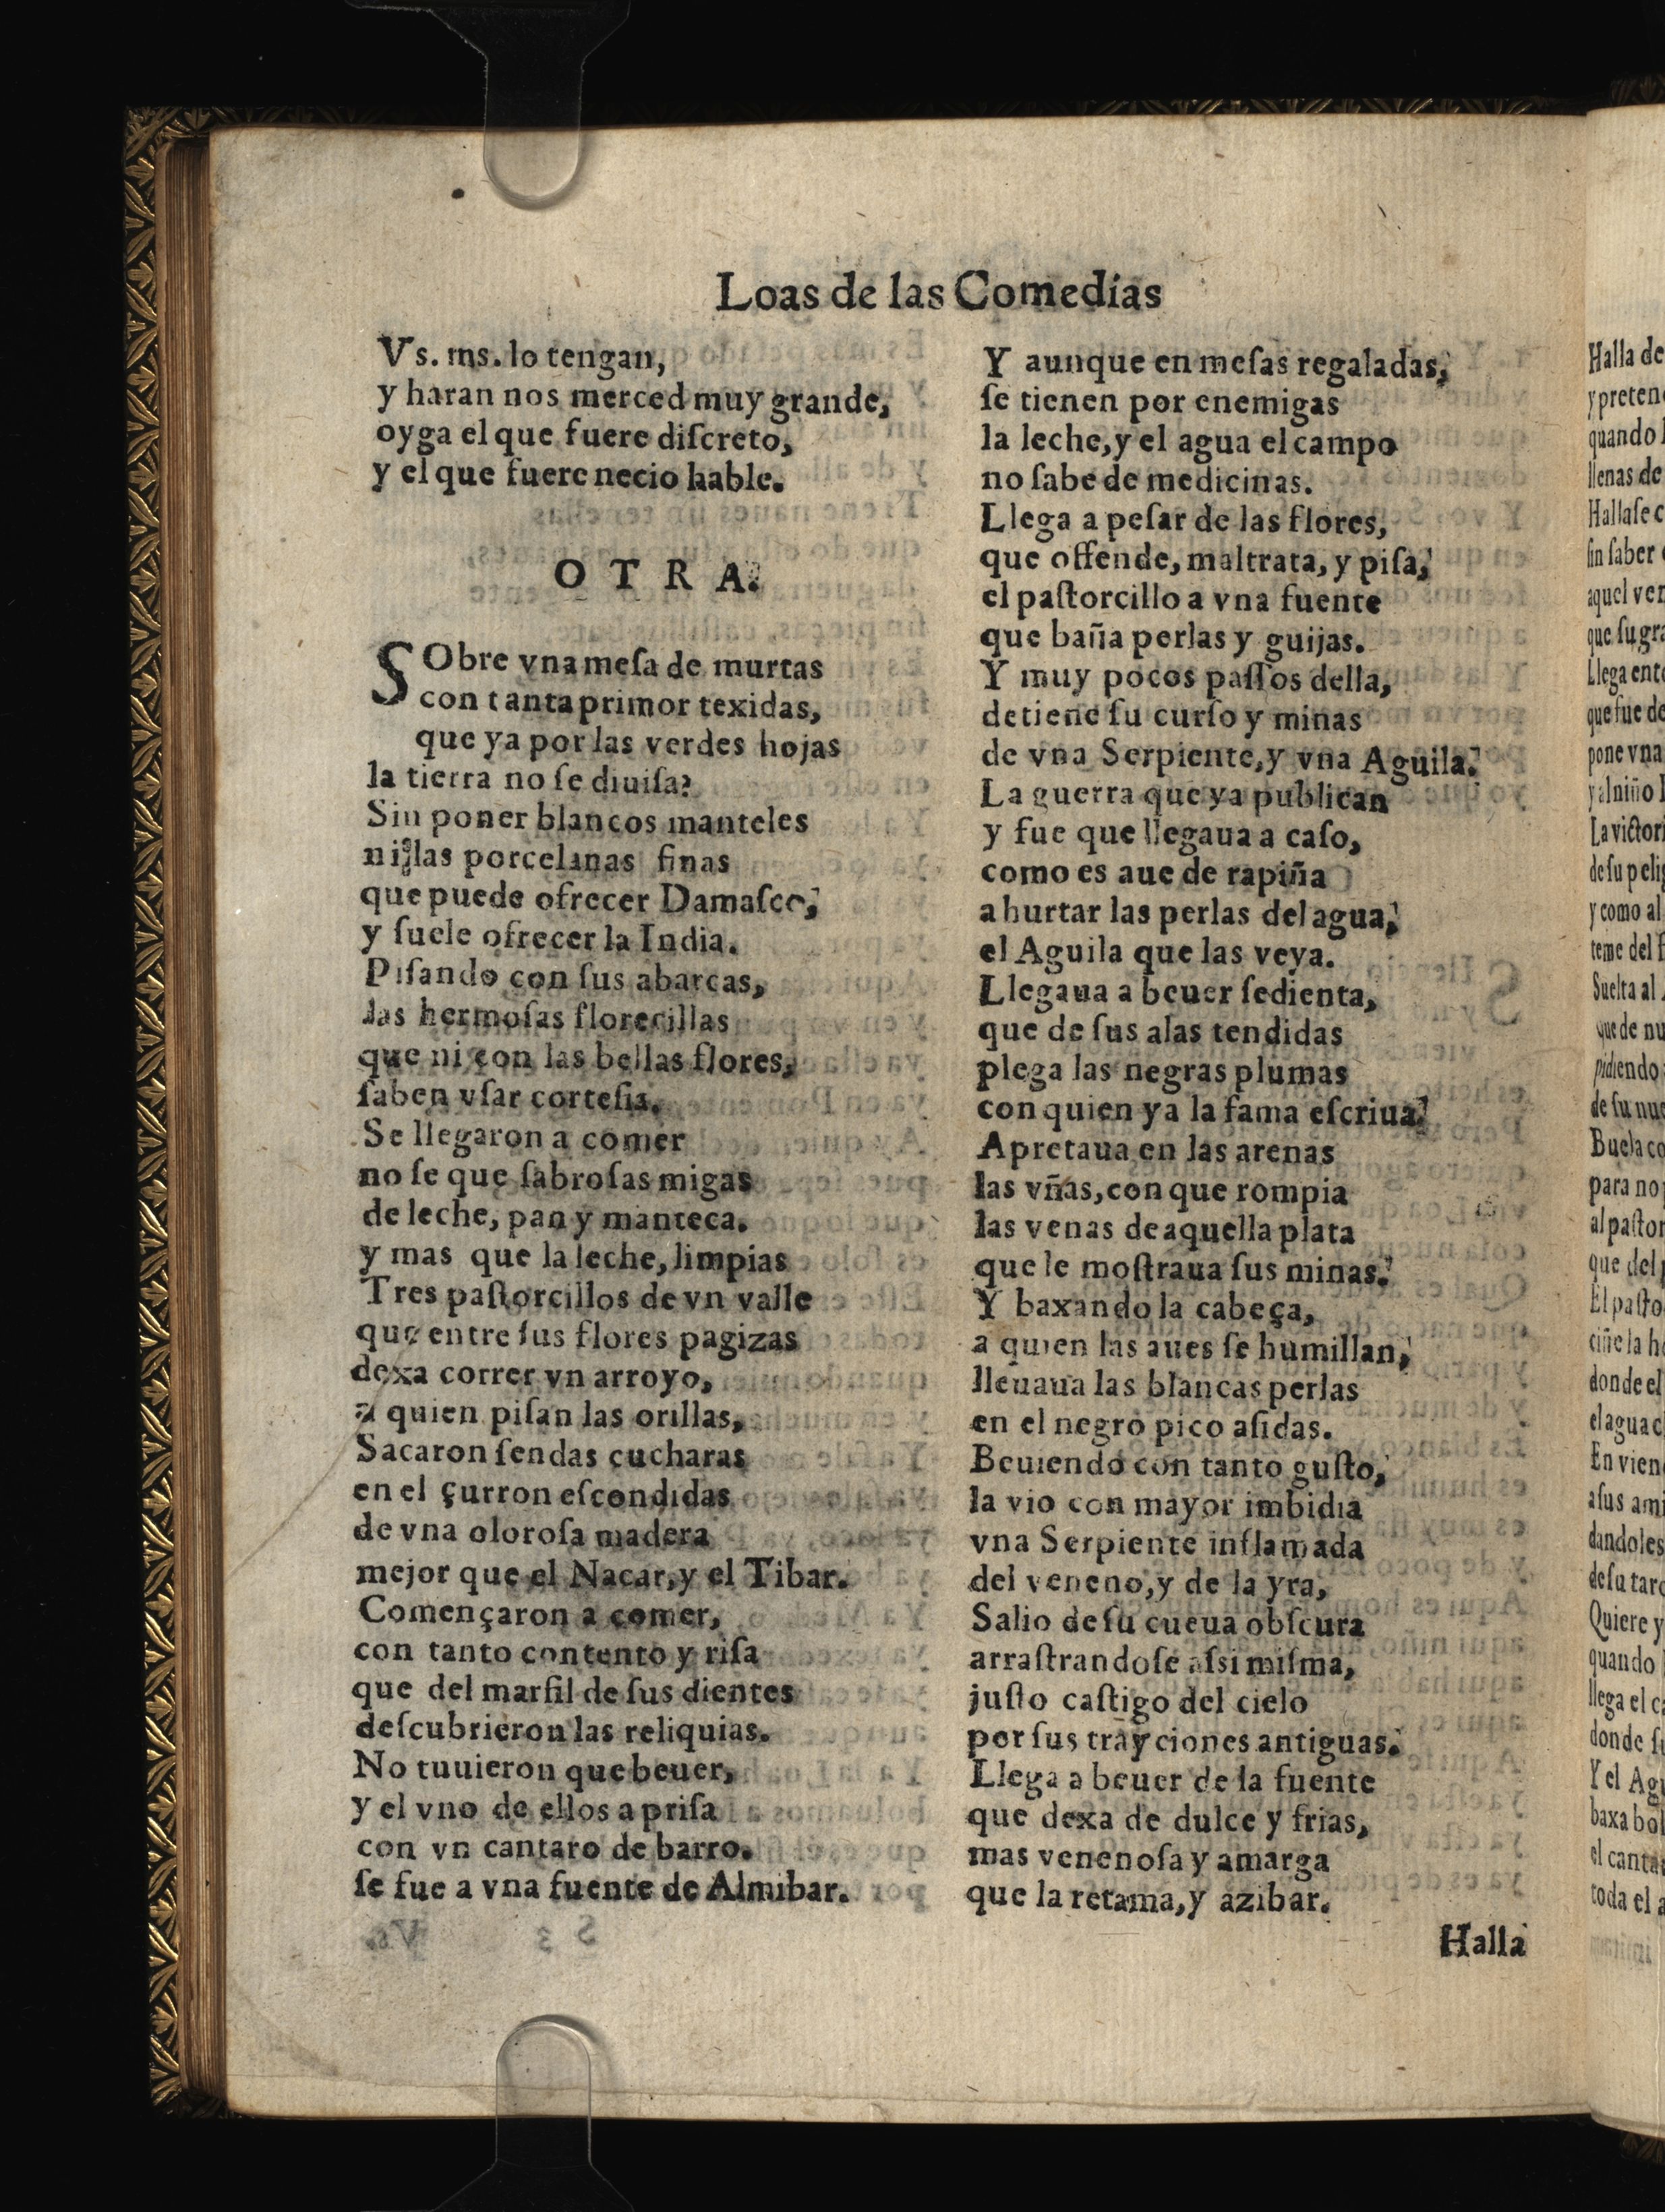 Loas de las Comedias
Vs. ms. lo tengan,
y haran nos merced muy grande,
oyga el que fuere diſcreto,
y el que fuere necio hable.
OTRA.
SObre vna meſa de murtas
con tanta primor texidas,
que ya por las verdes hojas
la tierra no ſe diuiſa?
Sin poner blancos manteles
ni las porcelanas finas
que puede ofrecer Damaſco,
y ſuele ofrecer la India.
Piſando con ſus abarcas,
las hermoſas florecillas
que ni con las bellas flores,
ſaben vſar corteſia.
Se llegaron a comer
no ſe que ſabroſas migas
de leche, pan y manteca.
y mas que la leche, limpias
Tres paſtorcillos de vn valle
que entre ſus flores pagizas
dexa correr vn arroyo,
a quien piſan las orillas,
Sacaron ſendas cucharas
en el çurron eſcondidas
de vna oloroſa madera
mejor que el Nacar, y el Tibar.
Començaron a comer,
con tanto contento y riſa
que del marfil de ſus dientes
deſcubrieron las reliquias.
No tuuieron que beuer,
y el vno de ellos a priſa
con vn cantaro de barro.
ſe fue a vna fuente de Almibar.
Y aunque en meſas regaladas,
ſe tienen por enemigas
la leche, y el agua el campo
no ſabe de medicinas.
Llega a peſar de las flores,
que offende, maltrata, y piſa,
el paſtorcillo a vna fuente
que baña perlas y guijas.
Y muy pocos paſſos della,
detiene ſu curſo y minas
de vna Serpiente, y vna Aguila.
La guerra que ya publican
y fue que llegaua a caſo,
como es aue de rapiña
a hurtar las perlas del agua,
el Aguila que las veya.
Llegaua a beuer ſedienta,
que de ſus alas tendidas
plega las negras plumas
con quien ya la fama eſcriua.
Apretaua en las arenas
las vñas, con que rompia
las venas de aquella plata
que le moſtraua ſus minas.
Y baxando la cabeça,
a quien las aues ſe humillan,
lleuaua las blancas perlas
en el negro pico aſidas.
Beuiendo con tanto guſto,
la vio con mayor imbidia
vna Serpiente inflamada
del veneno, y de la yra,
Salio de ſu cueua obſcura
arraſtrandoſe aſsi miſma,
juſto caſtigo del cielo
por ſus trayciones antiguas.
Llega a beuer de la fuente
que dexa de dulce y frias,
mas venenoſa y amarga
que la retama, y azibar.
Halla
Halla de
y preten
quando l
llenas de
Hallaſe c
ſin ſaber
aquel ver
que ſu gra
Llega ent
que fue de
pone vna
y al niño l
La victori
de ſu peli
y como al
teme del f
Suelta al
que de nu
pidiendo
de ſu nue
Buela co
para no
al paſtor
que del
El paſto
ciñe la h
donde el
el agua c
En vien
a ſus ami
dandoles
de ſu tar
Quiere y
quando
llega el c
donde ſ
Y el Ag
baxa bol
el canta
toda el a